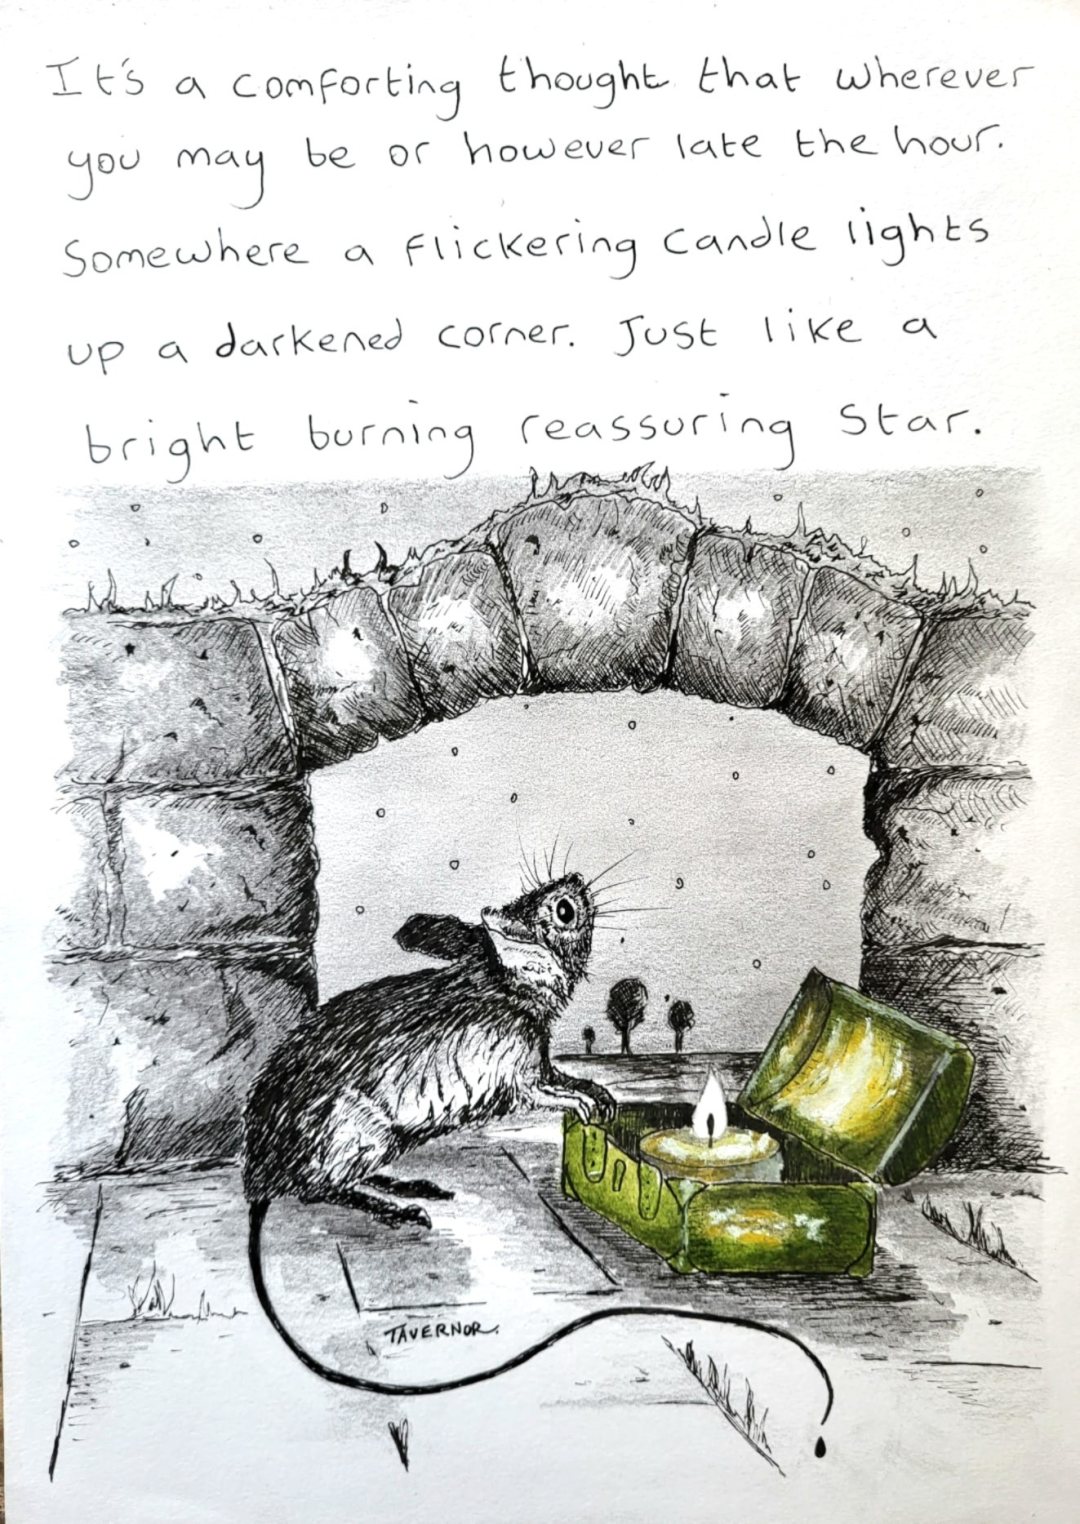 It's a comforting thought that wherever
you may be or however late the hour.
Somewhere a flickering candle lights
up a darkened corner. Just like a
bright burning reassuring Star.
TAVERNOR.